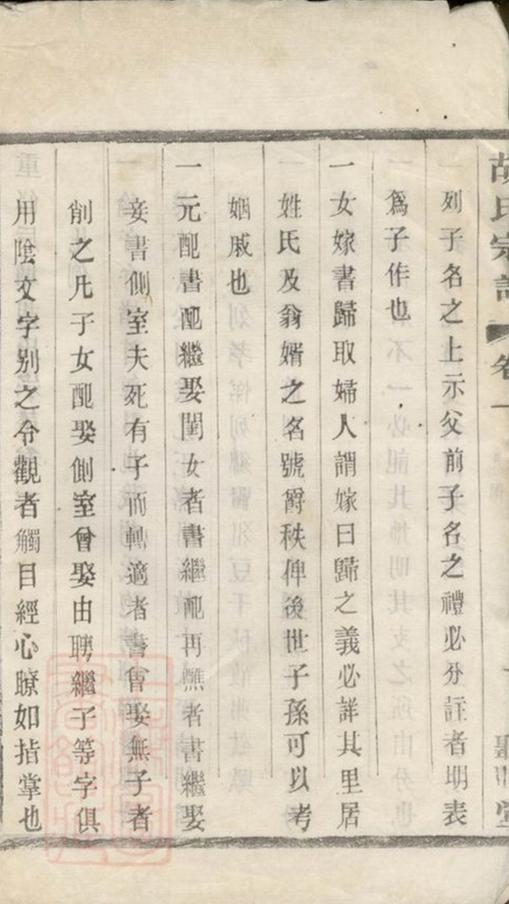 胡氏宗譜 卷一
列子名之上示父前子名之禮必分註者明表
爲子作也
一女嫁書歸取婦人謂嫁曰歸之義必詳其里居
姓氏及翁婿之名號爵秩俾後世子孫可以考
姻戚也
一元配書配繼娶閨女者書繼配再醮者書繼娶
妾書側室夫死有子而轉適者書曾娶無子者
削之凡子女配娶側室曾娶由聘繼子等字俱
用陰文字別之令觀者觸目經心瞭如指掌也